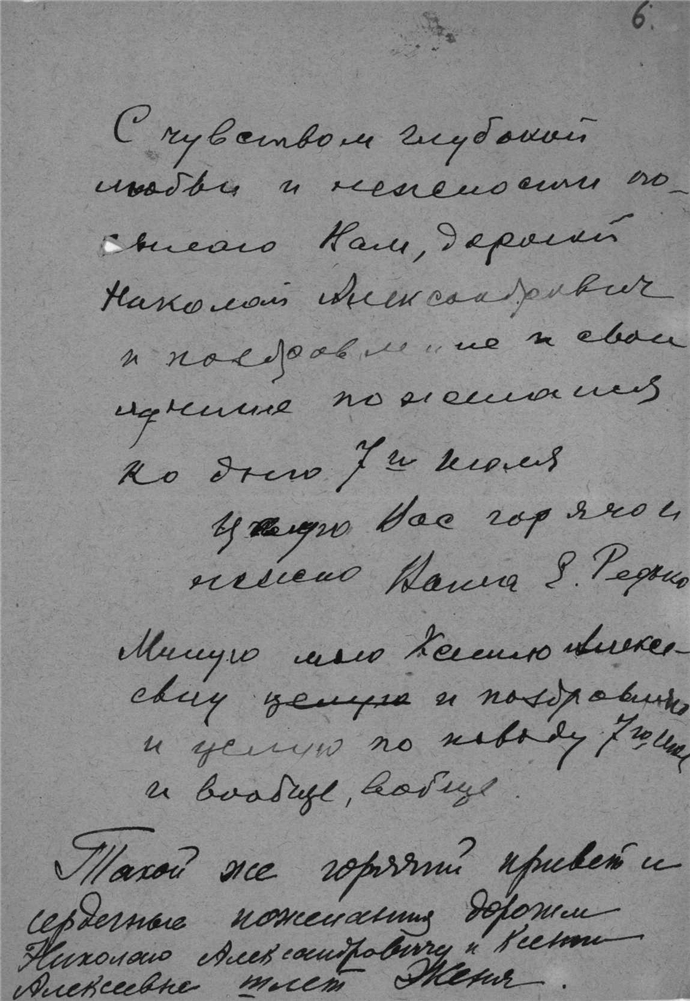 6.
С чувством глубокой
любви и нежности по-
сылаю Вам, дорогой
Николай Александрович
и поздравление и свои
лучшие пожелания
ко дню 7го июля
Целую Вас горячо и
нежно Ваша Е. Редько
Милую мою Ксению Алексе-
евну целую и поздравляю
и целую по поводу 7го июля
и вообще, вообще.
Такой же горячий привет и
сердечные пожелания дорогим
Николаю Александровичу и Ксении
Алексеевне шлет Женя.